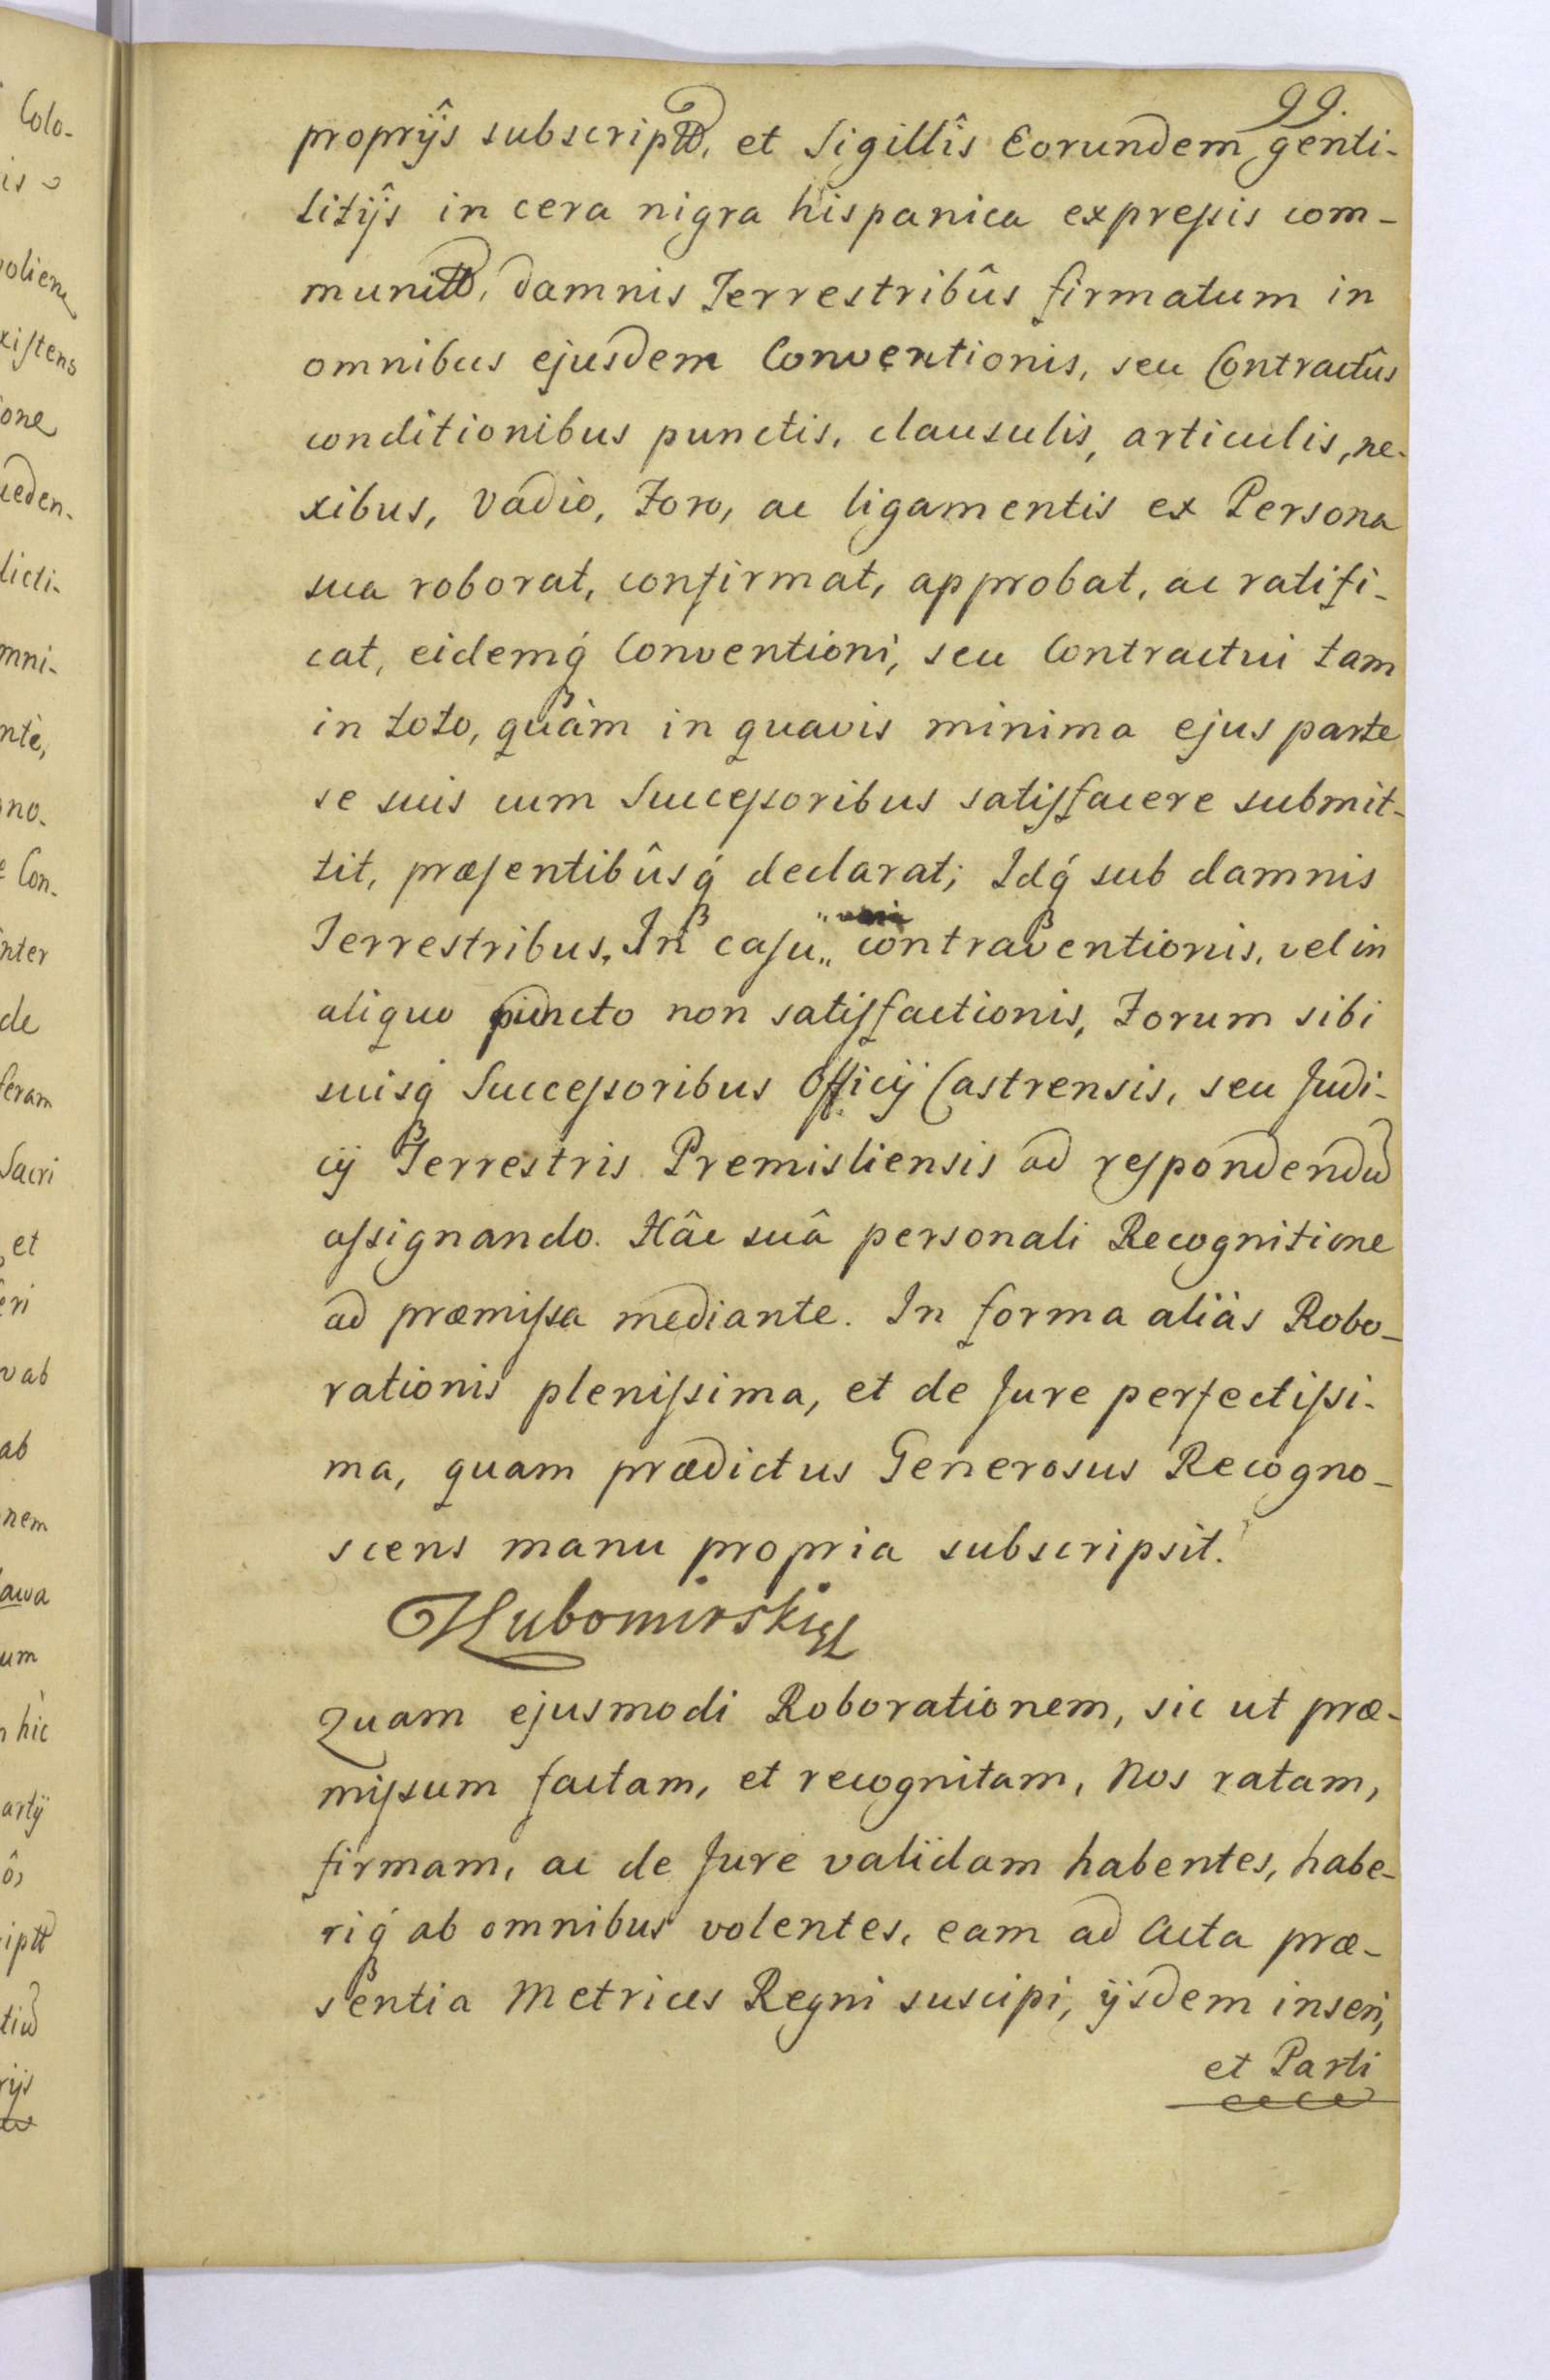 99.
proprijs subscriptt, et Sigillîs Eorundem genti-
litijs in cera nigra hispanica expressis com-
munitt, damnis Terrestribûs firmatum in
omnibus ejusdem Conventionis, seu Contractûs
conditionibus punctis, clausulis, articulis, ne-
xibus, Vadio, Foro, ac ligamentis ex Persona
sua roborat, confirmat, approbat, ac ratifi-
cat, eidemq́ Conventioni, seu Contractui tam
in toto, quàm in quavis minima ejus parte
se suis cum Successoribus satisfacere submit-
tit, præsentibûsq́ declarat; Idq́ sub damnis
Terrestribus, In casu„ contraventionis, vel in
aliquo puncto non satisfactionis, Forum sibi
suisq́ Successoribus Officij Castrensis, seu Judi-
cij Terrestris Premisliensis ad respondendũ
assignando. Hâc suâ personali Recognitione
ad præmissa mediante. In forma aliàs Robo-
rationis plenissima, et de Jure perfectissi-
ma, quam prædictus Generosus Recogno-
scens manu propria subscripsit.
Lubomirski
Quam ejusmodi Roborationem, sic ut præ-
missum factam, et recognitam, Nos ratam,
firmam, ac de Jure validam habentes, habe-
riq́ ab omnibus volentes, eam ad Acta præ-
sentia Metrices Regni suscipi, ijsdem inseri,
et Parti
Colo-
xistens
one
ceden-
dicti-
mni-
ntè,
no-
Con-
inter
de
feram
Sacri
et
vab
ab
nem
um
hic